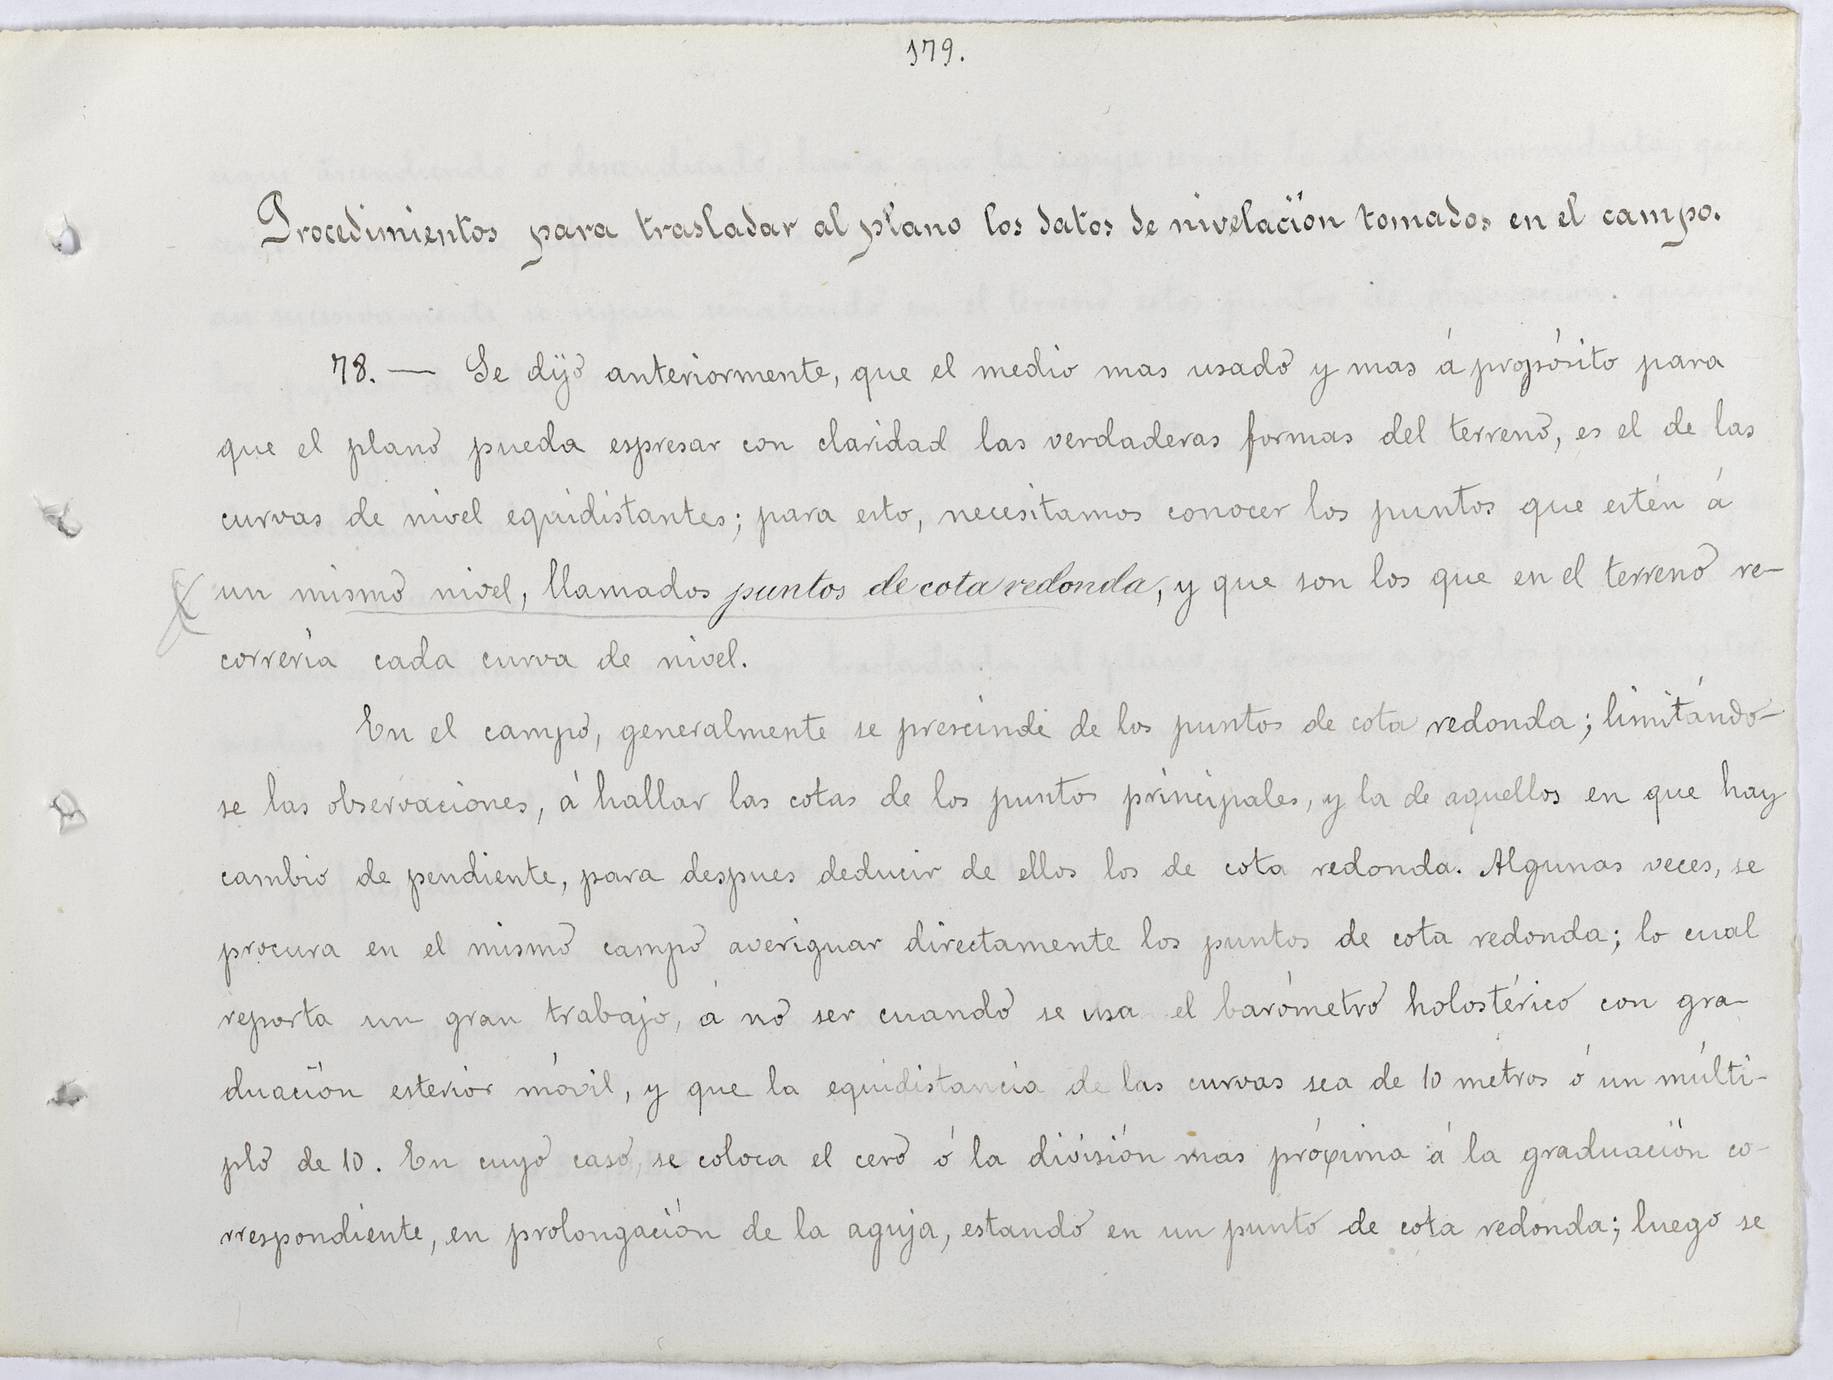 179.
Procedimientos para trasladar al plano los datos de nivelación tomados en el campo.
78. — Se dijo anteriormente, que el medio mas usado y mas á propósito para
que el plano pueda espresar con claridad las verdaderas formas del terreno, es el de las
curvas de nivel equidistantes; para esto, necesitamos conocer los puntos que estén á
un mismo nivel, llamados puntos de cota redonda, y que son los que en el terreno re-
correría cada curva de nivel.
En el campo, generalmente se prescinde de los puntos de cota redonda; limitándo-
se las observaciones, á hallar las cotas de los puntos principales, y la de aquellos en que hay
cambio de pendiente, para despues deducir de ellos los de cota redonda. Algunas veces, se
procura en el mismo campo averiguar directamente los puntos de cota redonda; lo cual
reporta un gran trabajo, á no ser cuando se usa el barómetro holostérico con gra-
duación esterior móvil, y que la equidistancia de las curvas sea de 10 metros ó un múlti-
plo de 10. En cuyo caso, se coloca el cero ó la división mas próxima á la graduación co-
rrespondiente, en prolongación de la aguja, estando en un punto de cota redonda; luego se